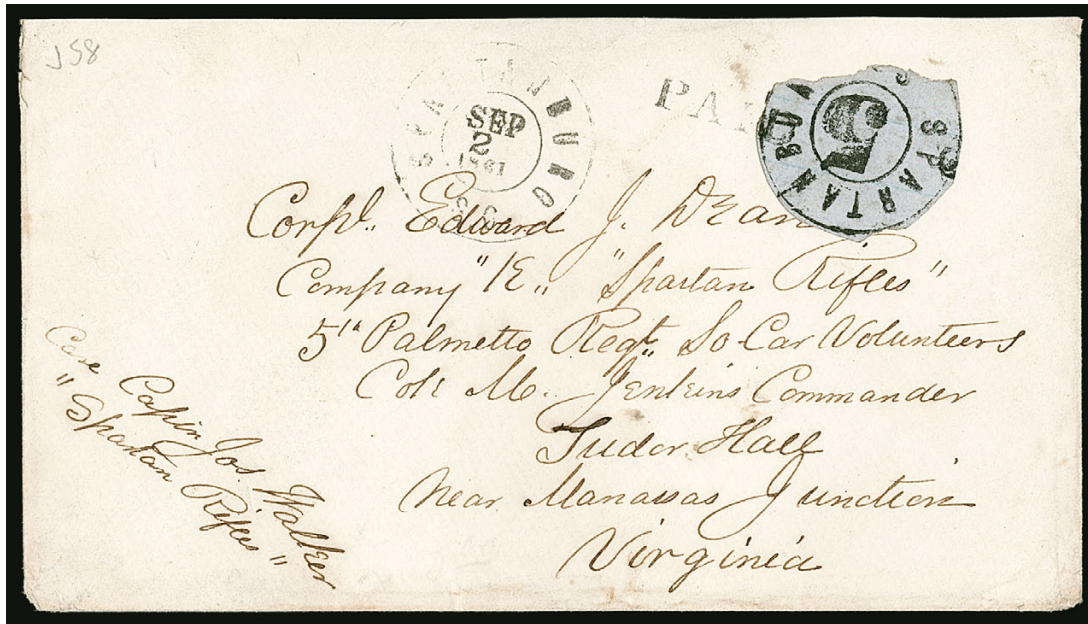 J58
SPARTANBURG S.C.
SEP
2
1861
PAI
SPARTANBURG S
5
Corpl. Edward J. Dean
Company "E" "Spartan Rifles"
5th Palmetto Regt. So Car Volunteers
Col. M. Jenkins Commander
Tudor Hall
Near Manassas Junction
Virginia
Care Captn Jos. Walker
"Spartan Rifles"